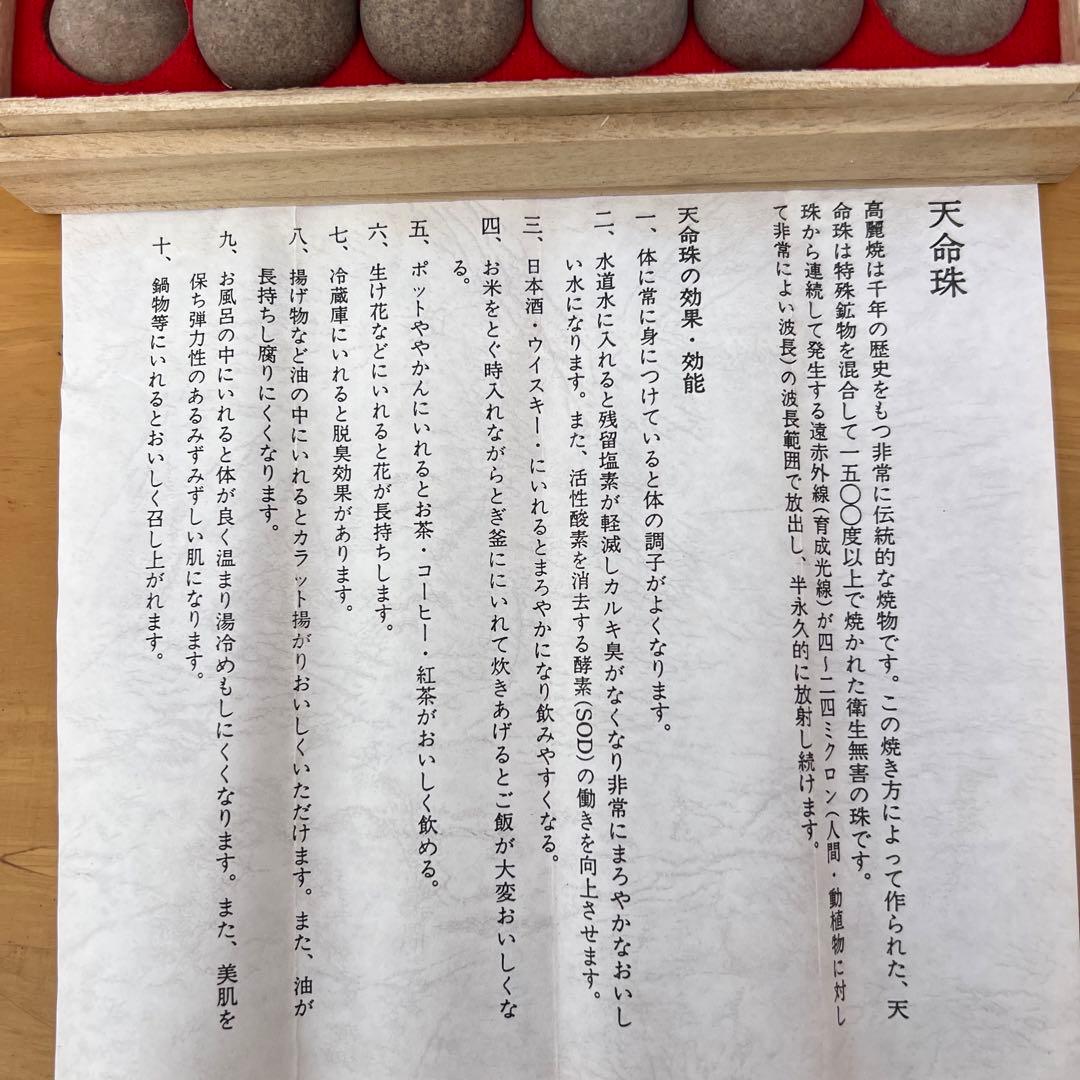 天命珠
高麗焼は千年の歴史をもつ非常に伝統的な焼物です。この焼き方によって作られた、天
命珠は特殊鉱物を混合して一五〇〇度以上で焼かれた衛生無害の珠です。
珠から連続して発生する遠赤外線(育成光線)が四~二四ミクロン(人間・動植物に対し
て非常によい波長)の波長範囲で放出し、半永久的に放射し続けます。
天命珠の効果・効能
一、体に常に身につけていると体の調子がよくなります。
二、水道水に入れると残留塩素が軽減しカルキ臭がなくなり非常にまろやかなおいし
い水になります。また、活性酸素を消去する酵素(SOD)の働きを向上させます。
三、日本酒・ウイスキー・にいれるとまろやかになり飲みやすくなる。
四、お米をとぐ時入れながらとぎ釜ににいれて炊きあげるとご飯が大変おいしくな
る。
五、ポットややかんにいれるとお茶・コーヒー・紅茶がおいしく飲める。
六、生け花などにいれると花が長持ちします。
七、冷蔵庫にいれると脱臭効果があります。
八、揚げ物など油の中にいれるとカラット揚がりおいしくいただけます。また、油が
長持ちし腐りにくくなります。
九、お風呂の中にいれると体が良く温まり湯冷めもしにくくなります。また、美肌を
保ち弾力性のあるみずみずしい肌になります。
十、鍋物等にいれるとおいしく召し上がれます。